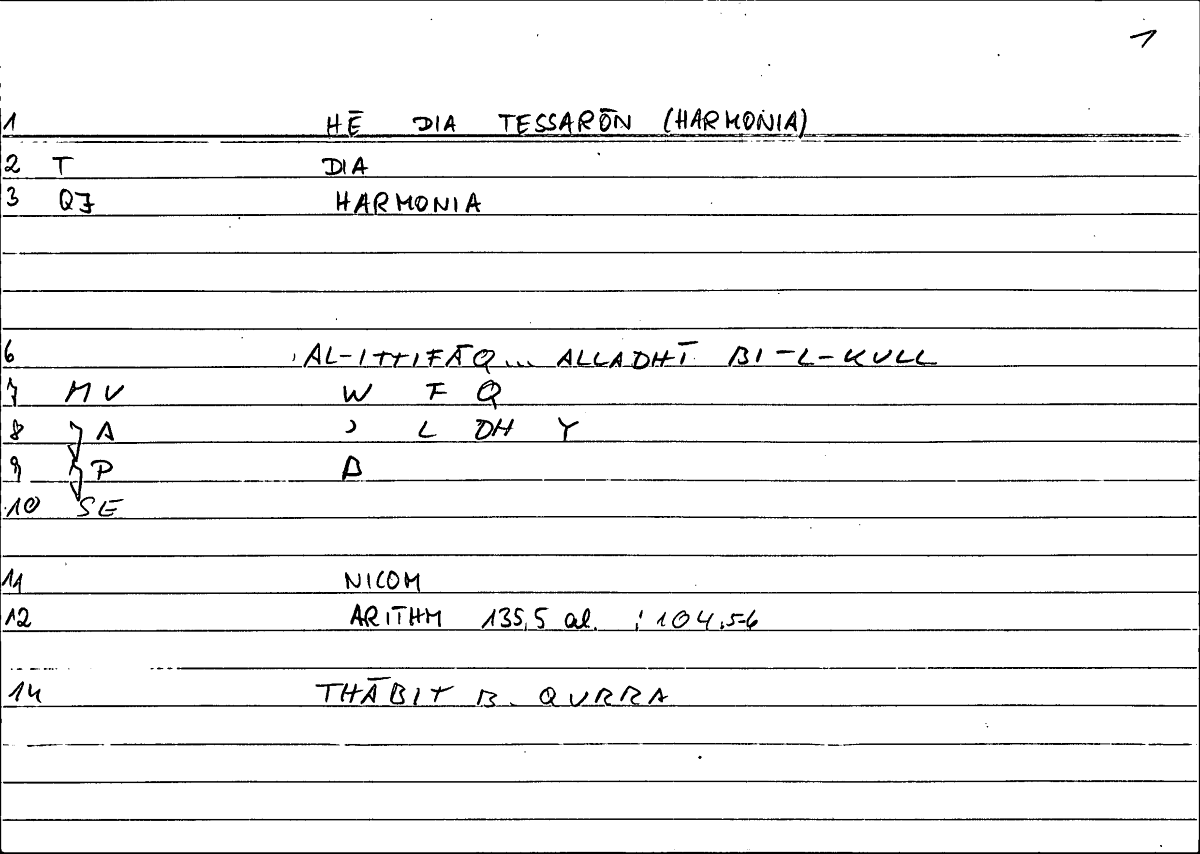 1
1 HĒ DIA TESSARŌN (HARMONIA)
2 T DIA
3 QJ HARMONIA
6 AL-ITTIFĀQ... ALLADHĪ BI-L-KULL
7 MV W F Q
8 A ʾ L DH Y
9 P B
10 SE
11 NICOM
12 ARITHM 135,5 al. ; 104,5-6
14 THĀBIT B. QURRA